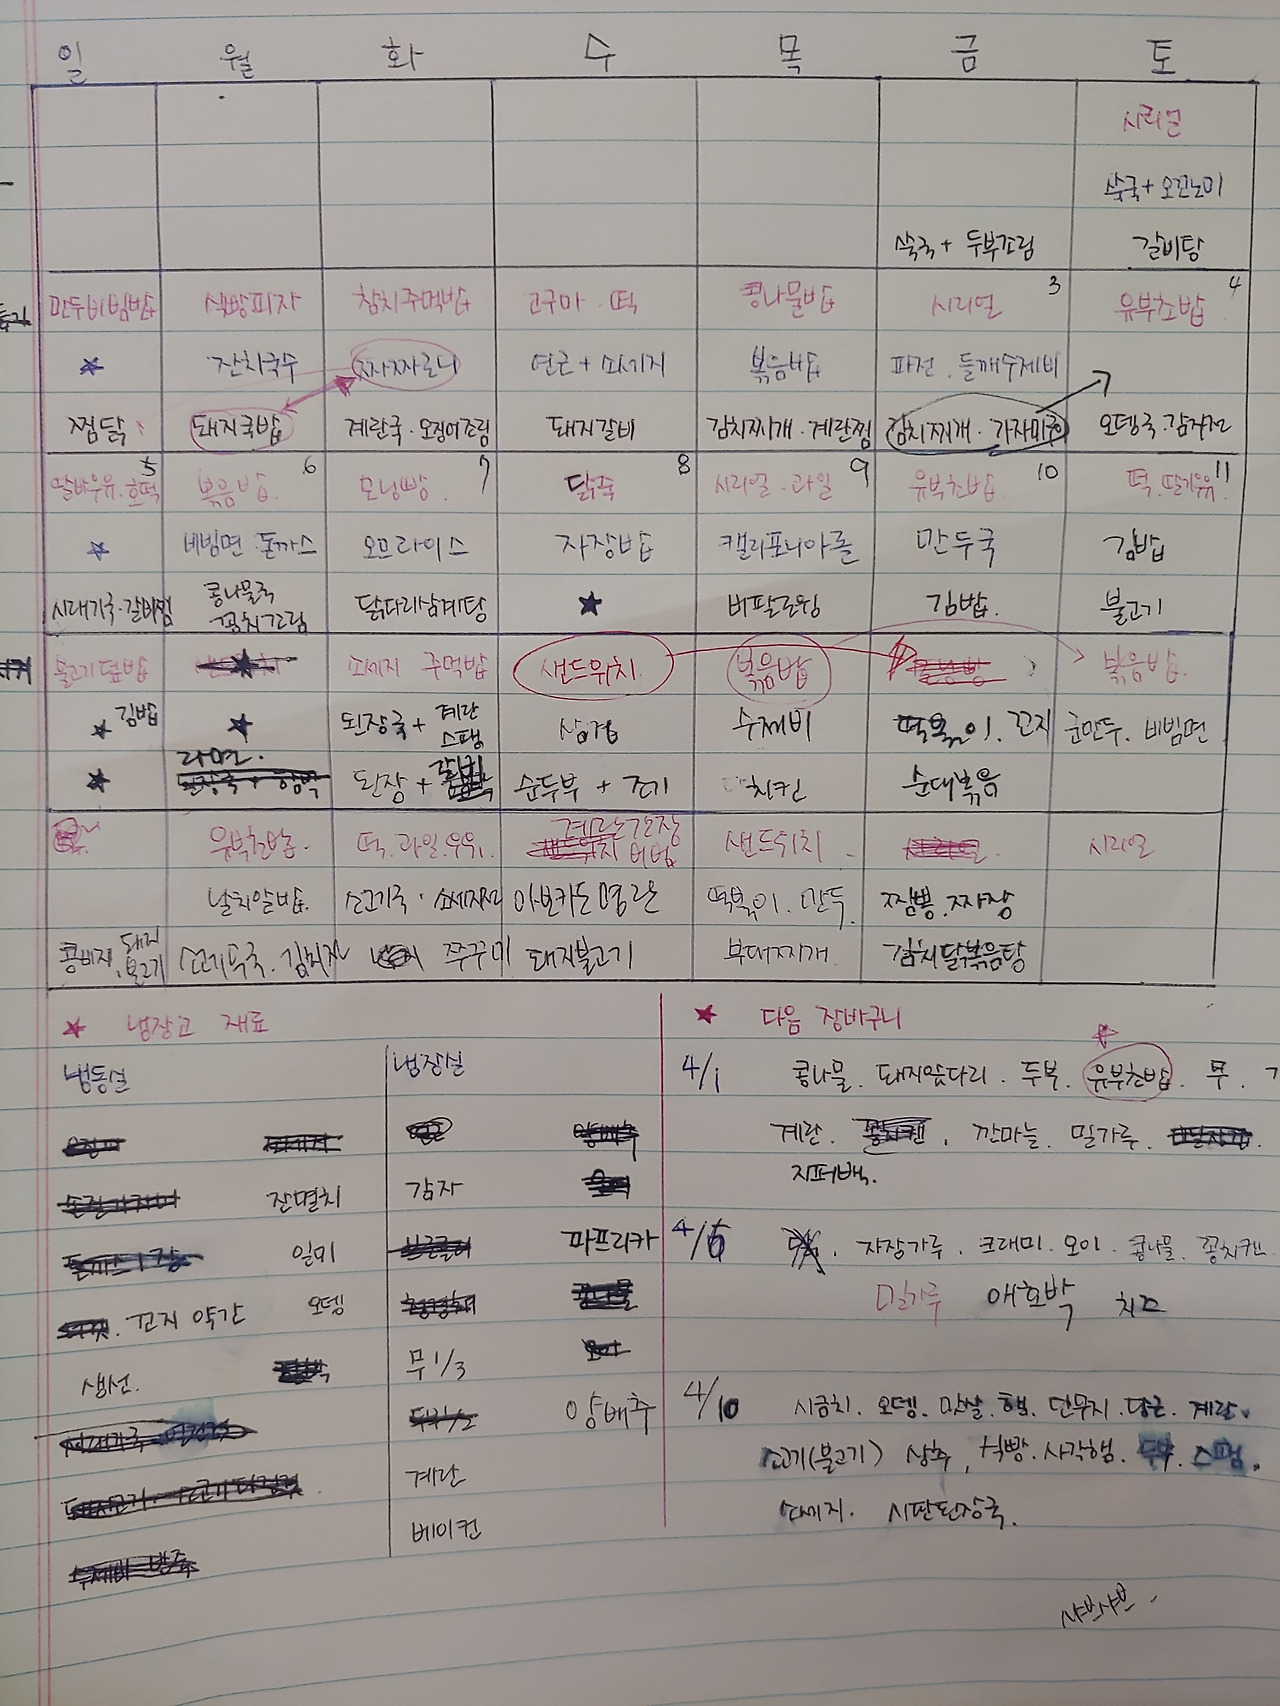 일 월 화 수 목 금 토
시리얼
쑥국 + 오꼬노미
쑥국 + 두부조림 갈비탕
3 4
만두비빔밥 식빵피자 참치주먹밥 고구마 · 떡 콩나물밥 시리얼 유부초밥
잔치국수 짜짜로니 연근 + 소세지 볶음밥 파전 · 들깨수제비
찜닭 돼지국밥 계란국 · 오징어조림 돼지갈비 김치찌개 · 계란찜 김치찌개 · 가자미 오뎅국 · 감자전
5 6 7 8 9 10 11
딸바우유 · 호떡 볶음밥 모닝빵 닭죽 시리얼 · 과일 유부초밥 떡 · 딸기우유
비빔면 · 돈까스 오므라이스 자장밥 캘리포니아롤 만두국 김밥
시래기국 · 갈비찜 콩나물국 꽁치조림 닭다리삼계탕 버팔로윙 김밥 불고기
불고기덮밥 소세지 주먹밥 샌드위치 볶음밥 볶음밥
김밥 된장국 + 계란 스팸 삼겹 수제비 떡볶이 · 꼬지 군만두 · 비빔면
라면 된장 + 순두부 + 조기 치킨 순대볶음
유부초밥 떡 · 과일 · 우유 계란간장 비빔 샌드위치 시리얼
날치알밥 소고기국 · 소세지전 아보카도 명란 떡볶이 · 만두 짬뽕 · 짜장
콩비지 · 돼지 불고기 소고기무국 · 김치전 쭈꾸미 돼지불고기 부대찌개 김치닭볶음탕
냉장고 재료 다음 장바구니
냉동실 냉장실
4/1 콩나물 · 돼지앞다리 · 두부 · 유부초밥 · 무 ·
계란 · 깐마늘 · 밀가루 ·
지퍼백.
잔멸치 감자
일미 파프리카
4/6 자장가루 · 크래미 · 오이 · 콩나물 · 꽁치캔
꼬지 약간 오뎅
밀가루 애호박 치즈
생선. 무 1/3
양배추
4/10 시금치 · 오뎅 · 맛살 · 햄 · 단무지 · 당근 · 계란
계란 소고기(불고기) 상추, 식빵 · 사각햄 · 두부 · 스팸
베이컨 소세지 · 시판된장국.
샤브샤브